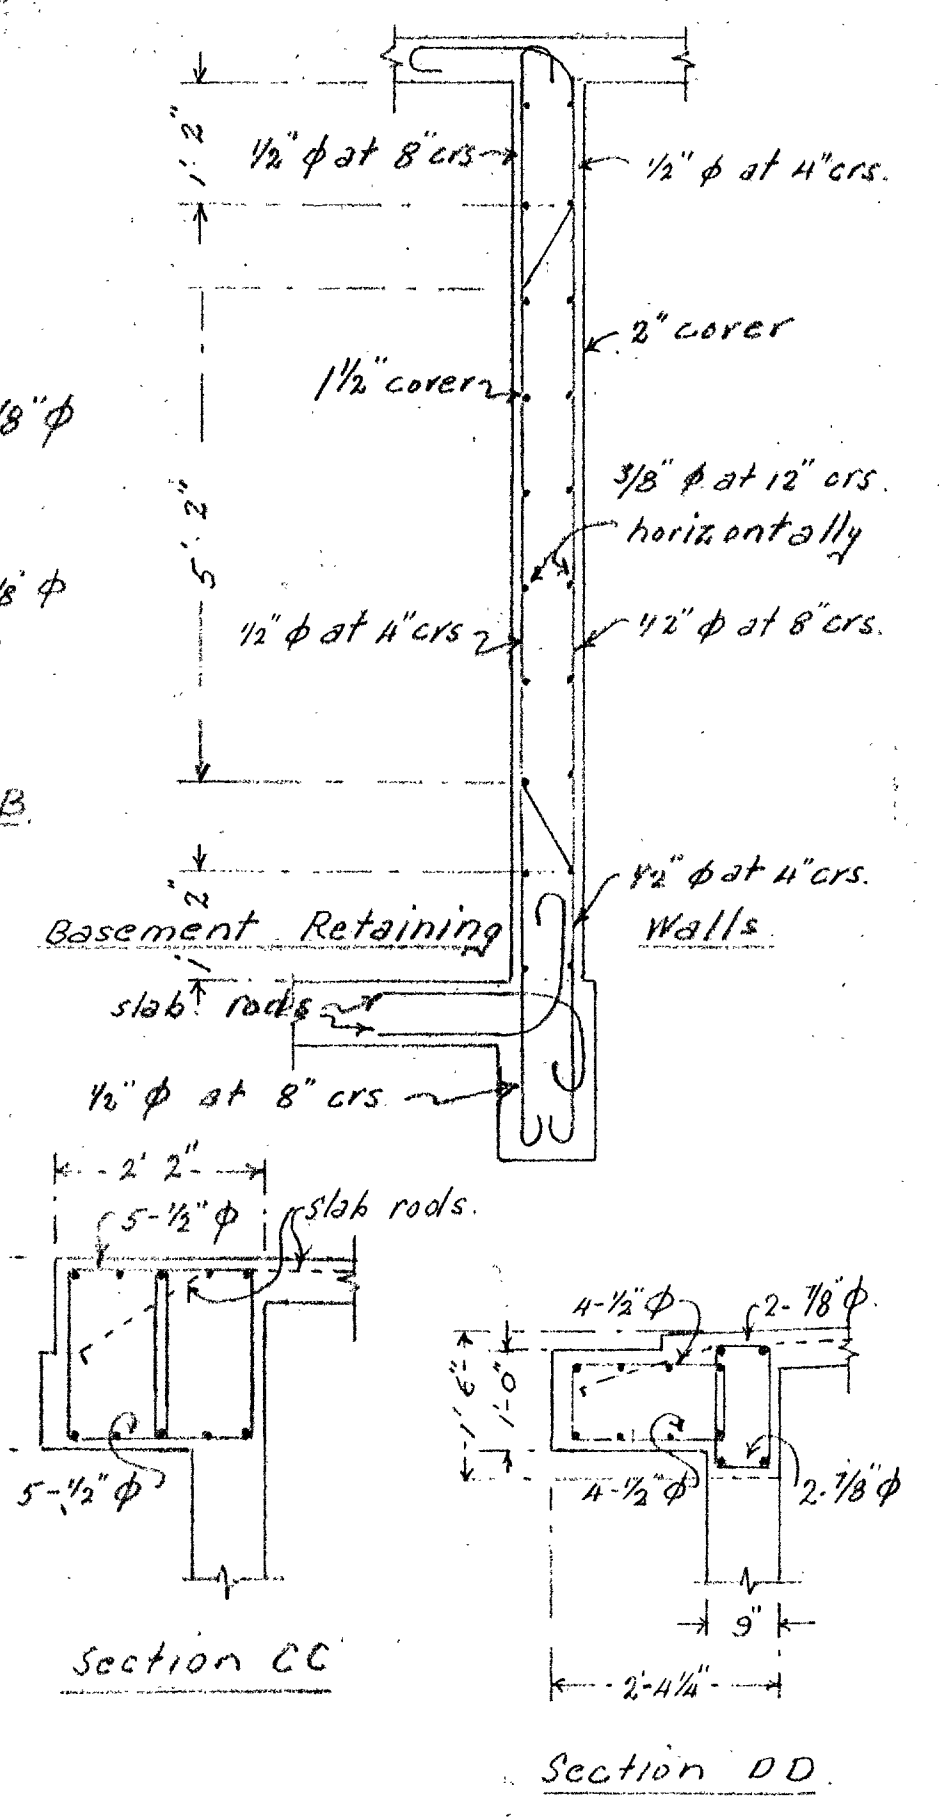 1' 2"
1/2" φ at 8" crs
1/2" φ at 4" crs.
2" cover
1 1/2" cover
/8" φ
3/8" φ at 12" crs.
horizontally
5' 2"
/8" φ
1/2" φ at 4" crs
1/2" φ at 8" crs.
B
1/2" φ at 4" crs.
1' 2"
Basement Retaining Walls
slab rods
1/2" φ at 8" crs
2' 2"
5-1/2" φ
slab rods.
5-1/2" φ
Section CC
4-1/2" φ
2-7/8" φ.
1' 6"
1'-0"
4-1/2" φ
2-7/8" φ
9"
2'-4 1/4"
Section DD